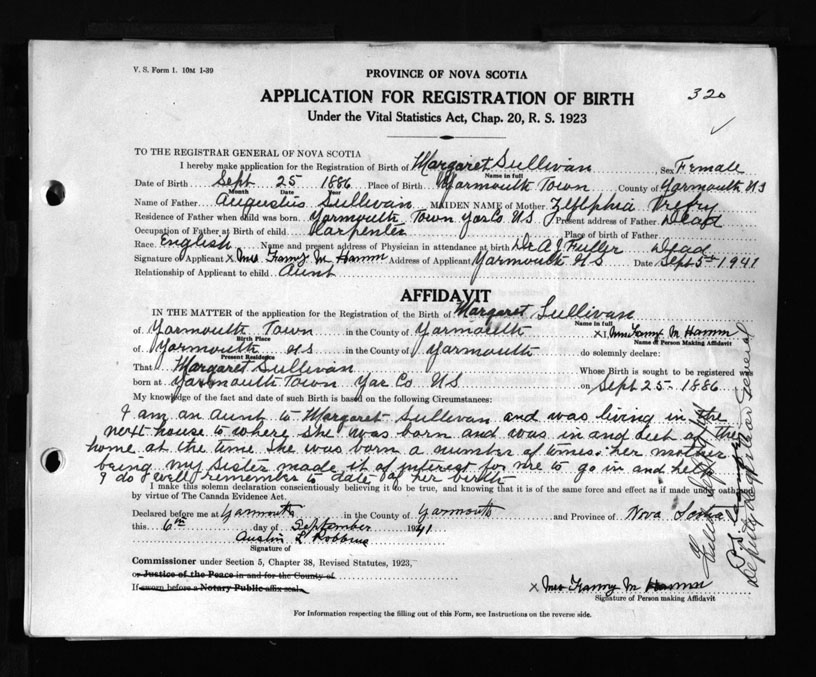 V. S. Form 1. 10M 1-39
PROVINCE OF NOVA SCOTIA
320
APPLICATION FOR REGISTRATION OF BIRTH
Under the Vital Statistics Act, Chap. 20, R. S. 1923
TO THE REGISTRAR GENERAL OF NOVA SCOTIA
I hereby make application for the Registration of Birth of Margaret Sullivan, Sex Female
Name in full
Date of Birth Sept 25 1886 Place of Birth Yarmouth Town, County of Yarmouth NS
Month Date Year
Name of Father Augustus Sullivan MAIDEN NAME of Mother Zylphia Trefry
Residence of Father when child was born Yarmouth Town Yar Co NS Present address of Father Dead
Occupation of Father at Birth of child Carpenter Place of birth of Father
Race English Name and present address of Physician in attendance at birth Dr A J Fuller Dead
Signature of Applicant X Mrs Fanny M Hamm Address of Applicant Yarmouth NS Date Sept 5th 1941
Relationship of Applicant to child Aunt
AFFIDAVIT
IN THE MATTER of the application for the Registration of the Birth of Margaret Sullivan
Name in full
of Yarmouth Town in the County of Yarmouth X I, Mrs Fanny M Hamm
Birth Place Name of Person Making Affidavit
of Yarmouth NS in the County of Yarmouth do solemnly declare:
Present Residence
That Margaret Sullivan Whose Birth is sought to be registered was
born at Yarmouth Town Yar Co NS on Sept 25. 1886
My knowledge of the fact and date of such Birth is based on the following Circumstances:
I am an Aunt to Margaret Sullivan and was living in the
next house to where she was born and was in and out of the
home at the time she was born a number of times. her mother
being my sister made it of interest for me to go in and help
I do well remember to date of her birth
I make this solemn declaration conscientiously believing it to be true, and knowing that it is of the same force and effect as if made under oath
by virtue of The Canada Evidence Act.
Declared before me at Yarmouth in the County of Yarmouth and Province of Nova Scotia
this 6th day of September 1941
Austin L Robbins
Signature of
Commissioner under Section 5, Chapter 38, Revised Statutes, 1923,
or Justice of the Peace in and for the County of
If sworn before a Notary Public affix seal.
X Mrs Fanny M Hamm
Signature of Person making Affidavit
For Information respecting the filling out of this Form, see Instructions on the reverse side.
Deputy Registrar General